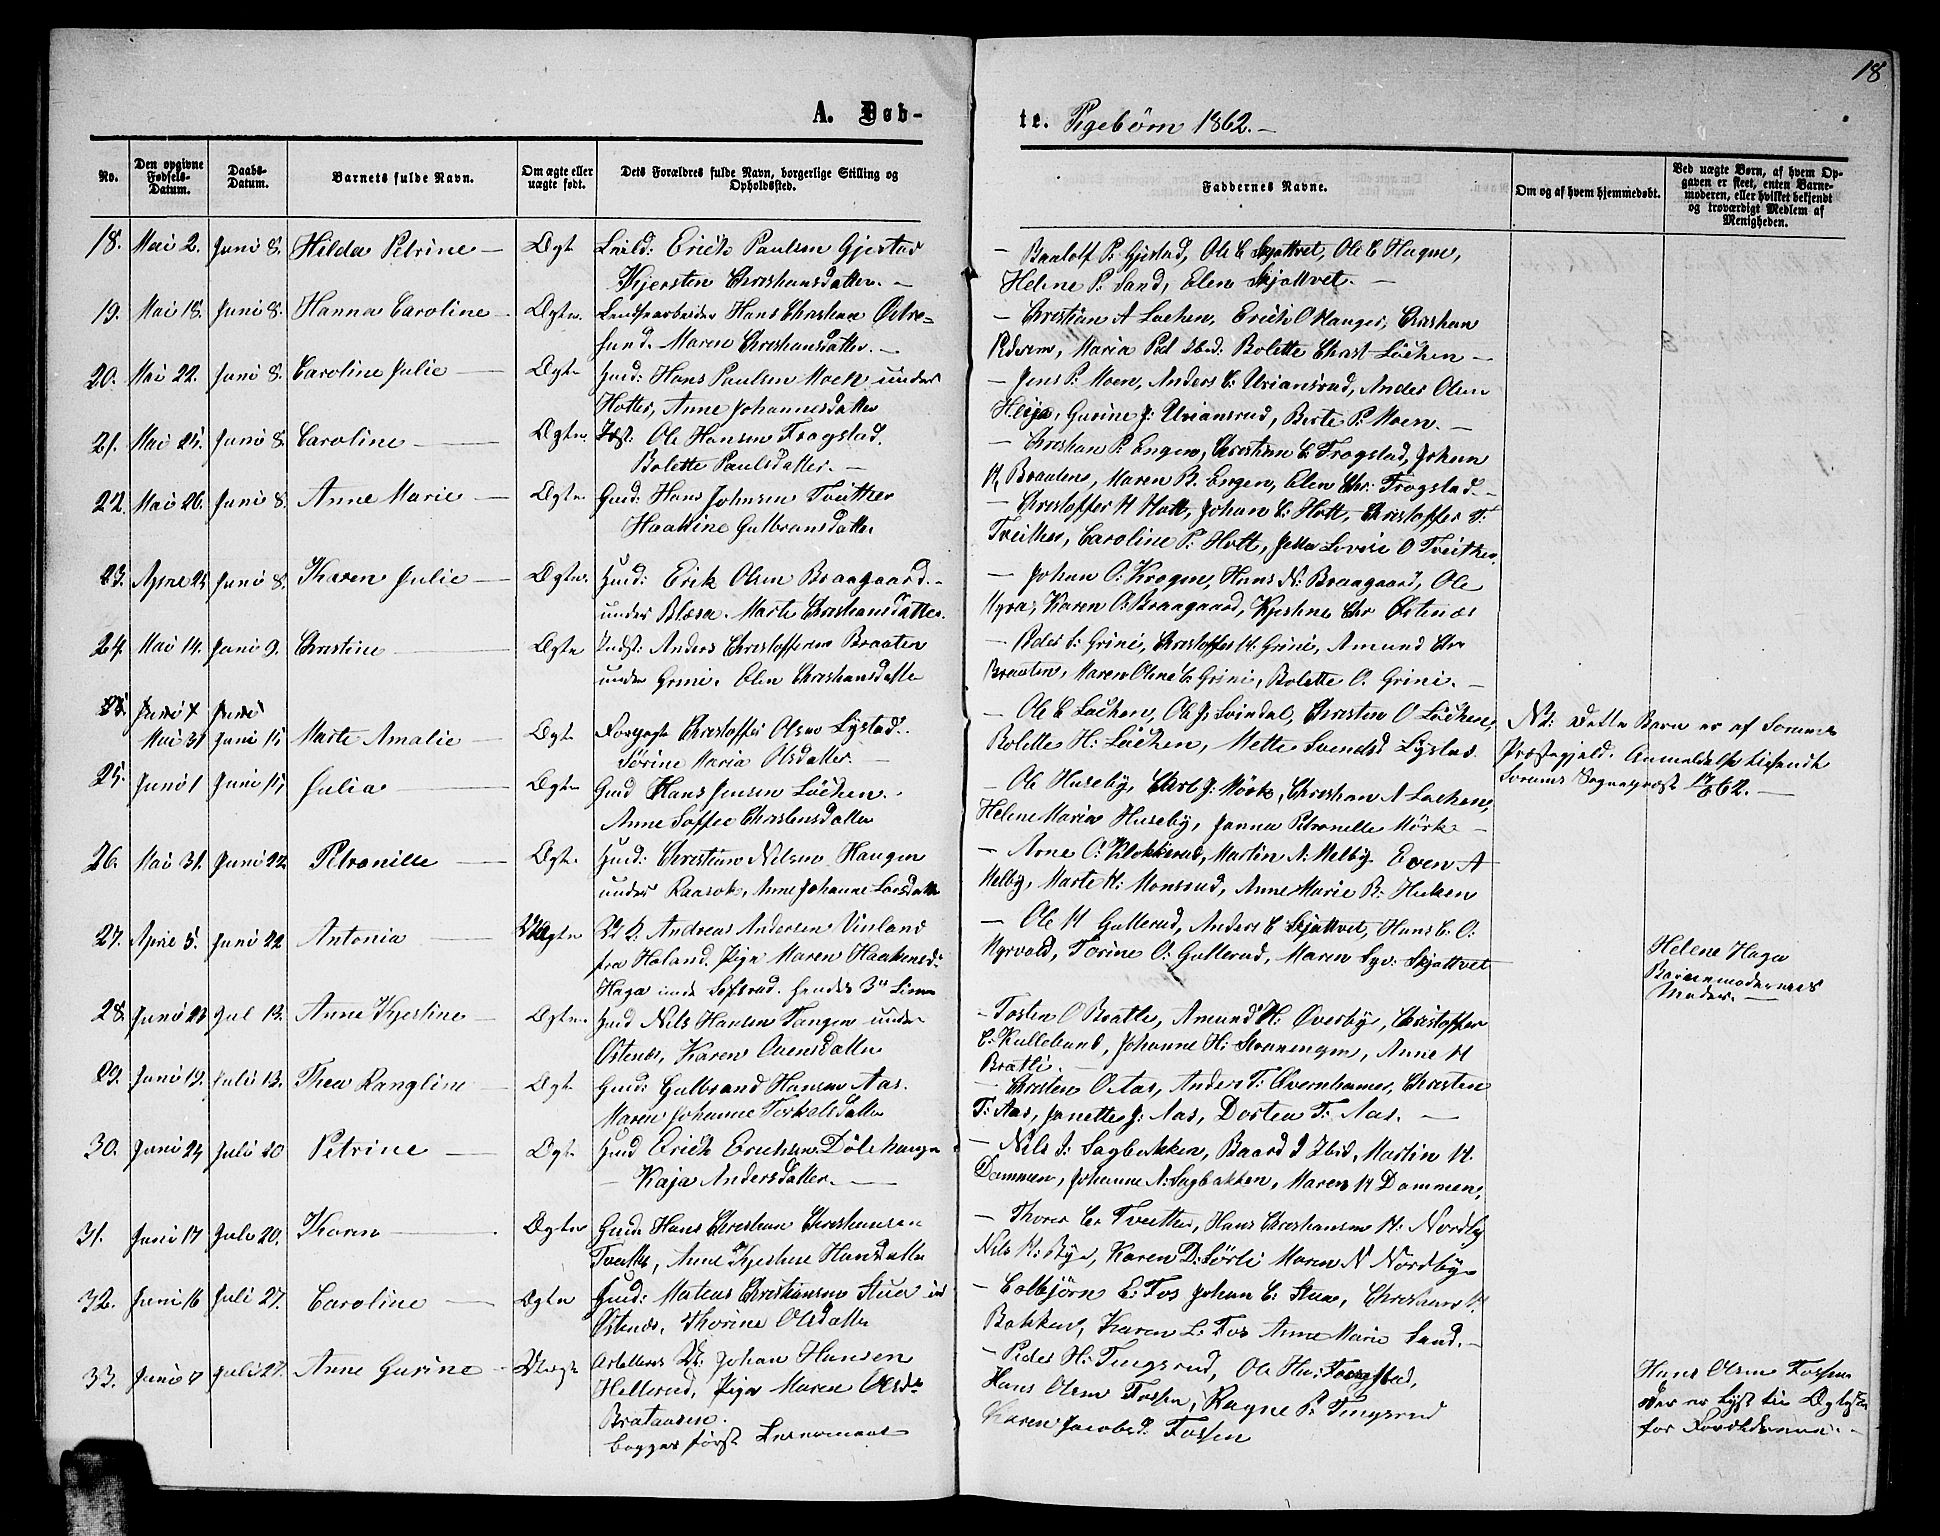 18
A. Døb-
te. Pigebørn 1862. –
No.
Den opgivne Fødsels-Datum.
Daabs-Datum.
Barnets fulde Navn.
Om ægte eller uægte født.
Dets Forældres fulde Navn, borgerlige Stilling og Opholdssted.
Faddernes Navne.
Om og af hvem hjemmedøbt.
Ved uægte Børn, af hvem Opgaven er skeet, enten Barnemoderen, eller hvilket bekjendt og troværdigt Medlem af Menigheden.
18. Mai 2. Juni 8. Hilda Petrine – Ægt Erick Paulsen Gjestad
Kjersten Christiansdatter. –
– Baalolf P. Gjestad, Ole E Skjattvet, Ole E Hagen,
Helene P. Sand, Elen Skjattvet. –
19. Mai 18. Juni 8. Hanna Caroline – Ægte. Hans Christian Ostre=
sund. Maren Christiansdatter. –
– Christian A Løchen, Erich O Hanger, Christian
Pedersen, Maria Ped Ibid: Bolette Christ Löchen –
20. Mai 22. Juni 8. Caroline Julie – Ægte Huusd: Hans Paulsen Moen under
Hotter, Anne Johannesdatter
– Jens P. Moen, Anders C. Uriansrud, Anders Olsen
Heija, Gurine J: Uriansrud, Berte P. Moen. –
21. Mai 25. Juni 8. Caroline – Ægte. Ole Hansen Frogstad.
Bolette Paulsdatter. –
– Christian P. Engen, Christian E. Frogstad, Johan
H. Braaten, Maren B. Engen, Elen Chr. Frogstad. –
22. Mai 26. Juni 8. Anne Marie – Ægte Gmd: Hans Johnsen Tveither
Haakine Gulbransdatter
– Christoffer H Hott, Johan C. Hott, Christoffer T:
Tveither, Caroline P. Hott, Lovise O Tveither,
23. April 25 Juni 8. Karen Julie – Ægte. Huusd: Erik Olsen Braagaard. –
under Blæsa. Marte Christiansdatter.
– Johan O. Krogen, Hans N: Braagaard, Ole
Myra, Karen O. Braagaard, Kjestine Chr Østenæs
24. Mai 14. Juni 9. Christine – Ægte Indst: Anders Christoffersen Braaten
under Grini. Elen Christiansdatter
– Peder C: Grini, Christoffer H. Grini, Amund Chr
Braaten, Maren Olene C Grini, Bolette O. Grini. –
Mai 31 Juni 15 Marte Amalie – Ægte Christoffer Olsen Lystad.
Sörine Maria Olsdatter. –
– Ole C Løchen, Ole J. Svindal, Christen O Löchen,
Bolette H: Löchen, Mette Svendsd Lystad.
Nb: Dette Barn er af Sørums
Præstegjeld. Anmeldelse tilsendt
Sørums Sognepræst 17/6 62. –
25. Juni 1 Juni 15 Julia – Ægte Gmd Hans Jensen Löchen. –
Anne Soffie Christensdatter
– Ole Huseby, Carl J. Mörk, Christian A Løchen,
Helene Maria Huseby, Janna Petronelle Mörk –
26. Mai 31. Juni 22. Petronille – Ægte. Huusd: Christian Nilsen Haugen
under Raasok, Anne Johanne Larsdatter
– Arne O: Klokkerud, Martin A: Melby Even A
Melby, Marte H. Monsrud, Anne Marie R: Huken
27. April 5. Juni 22 Antonia – Uægte Andreas Andersen Vinland
fra Høland. Pige Maren Haakensd:
Haga
– Ole H Gullerud, Anders E Skjattvet, Hans C. O:
Myrvold, Torine O: Gullerud, Maren Syv: Skjattvet
Helene Haga
Barnemoderens
Moder. –
28. Juni 23 Jul 13. Anne Kjestine – Ægte. Huusd Nils Hansen Tangen under
Østenæs, Karen Evensdatter
– Tosten O Bratle, Amund H: Overby, Christoffer
E. Kullebund, Johanne H: Stranengen, Anne H
Bratli. –
29. Juni 12. Juli 13. Thea Rangline – Ægt. Gmd: Gulbrand Hansen Aas.
Maren Johanne Torkelsdatter
– Christen O. Aas, Anders T: Overnhamer, Christen
T: Aas, Janette J: Aas, Dortea T. Aas. –
30. Juni 24 Juli 20 Petrine – Ægt. Huusd Erich Erichsen Dölehaugen
– Kaja Andersdatter. –
– Nils J: Sagbakken, Baard J Ibid, Martin H.
Dammen, Johanne N: Sagbakken, Maren H Dammen,
31. Juni 17 Juli 20. Karen – Ægte Gmd: Hans Christian Christiansen
Tveither, Anne Kjestine Hansdatter
– Thorer Er Tveither, Hans Christiansen H: Nordby
Nils H: Bye, Karen D: Sörli Maren N Nordby –
32. Juni 16 Juli 27. Caroline – Ægte Huusd: Mateus Christiansen Stua und
Østenæs, Thorine Olsdatter
– Colbjörn E: Fos Johan E: Stua, Christian H.
Bakken, Karen L. Fos Anne Marie Sand. –
33. Juni 7 Juli 27. Anne Gurine – Uægt Johan Hansen
Hellerud, Pige Maren Olsdtr
Brataasen.
begges først Leiermaal
– Peder H: Tingsrud, Ole Ha: Frogstad,
Hans Olsen Fossen, Ragne P. Tingsrud
Karen Jacobsd Fossen
Hans Olsen Fossen
der er lyst til Ægteskab
for Forældrene. –